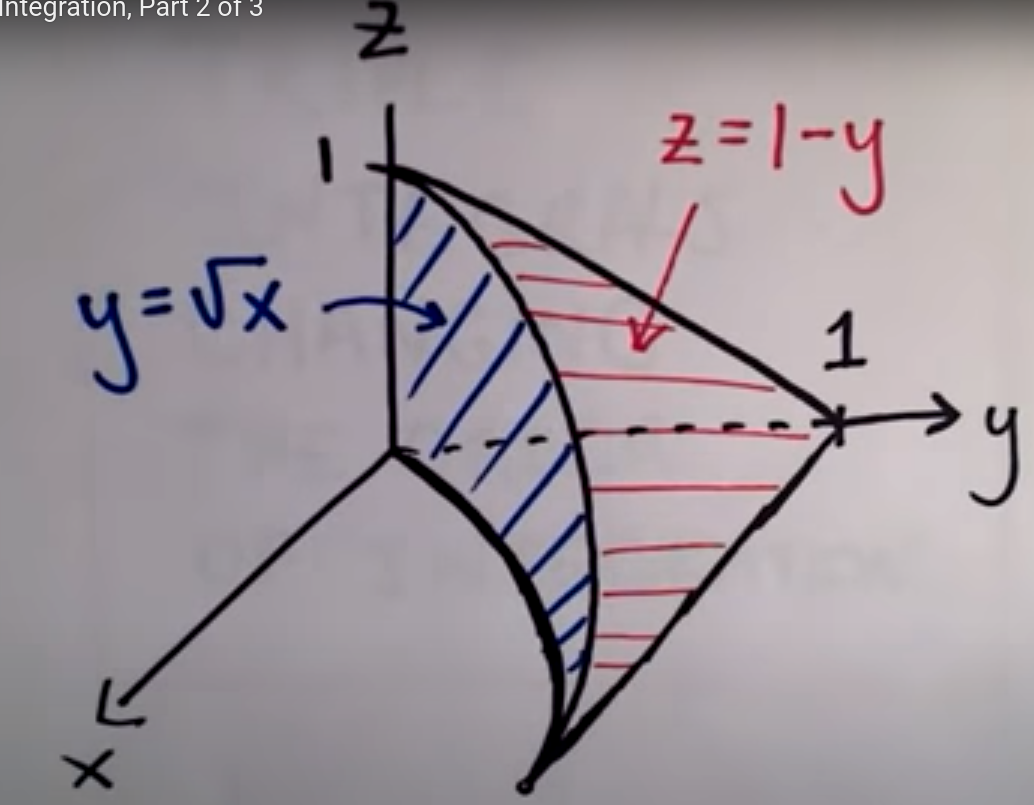 Integration, Part 2 of 3
z
1
z=1-y
y=√x
1
y
x